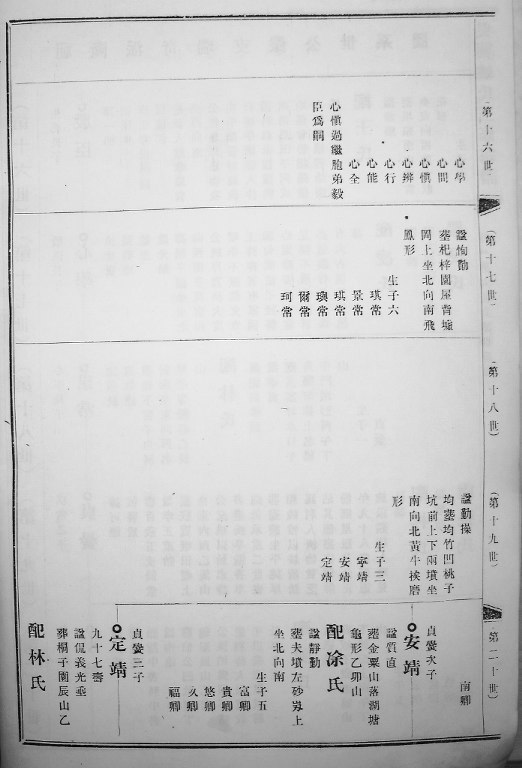 (第十六世)
心學
心問
心慎
心辨
心行
心能
心全
心慎過繼胞弟毅
臣爲嗣
(第十七世)
諡恂勤
塟杞梓園屋背墟
岡上坐北向南飛
鳳形
生子六
琪常
景常
琪常
璵常
爾常
珂常
(第十八世)
(第十九世)
諡勤操
均塟均竹凹桃子
坑前上下兩墳坐
南向北黃牛挨磨
形
生子三
寧靖
安靖
定靖
第二十世)
南卿
貞爨次子
安靖
諡質直
塟金粟山落湖塘
龜形乙卯山
配凃氏
諡靜勤
塟夫墳左砂嵙上
坐北向南
生子五
富卿
貴卿
悠卿
久卿
福卿
貞爨三子
定靖
九十七壽
諡侃義光垂
葬桐子園辰山乙
配林氏